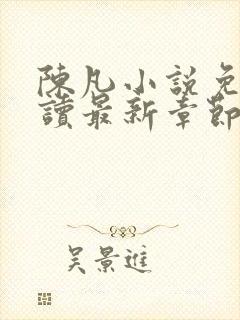 陳凡小說免
讀最新章節
吳景進